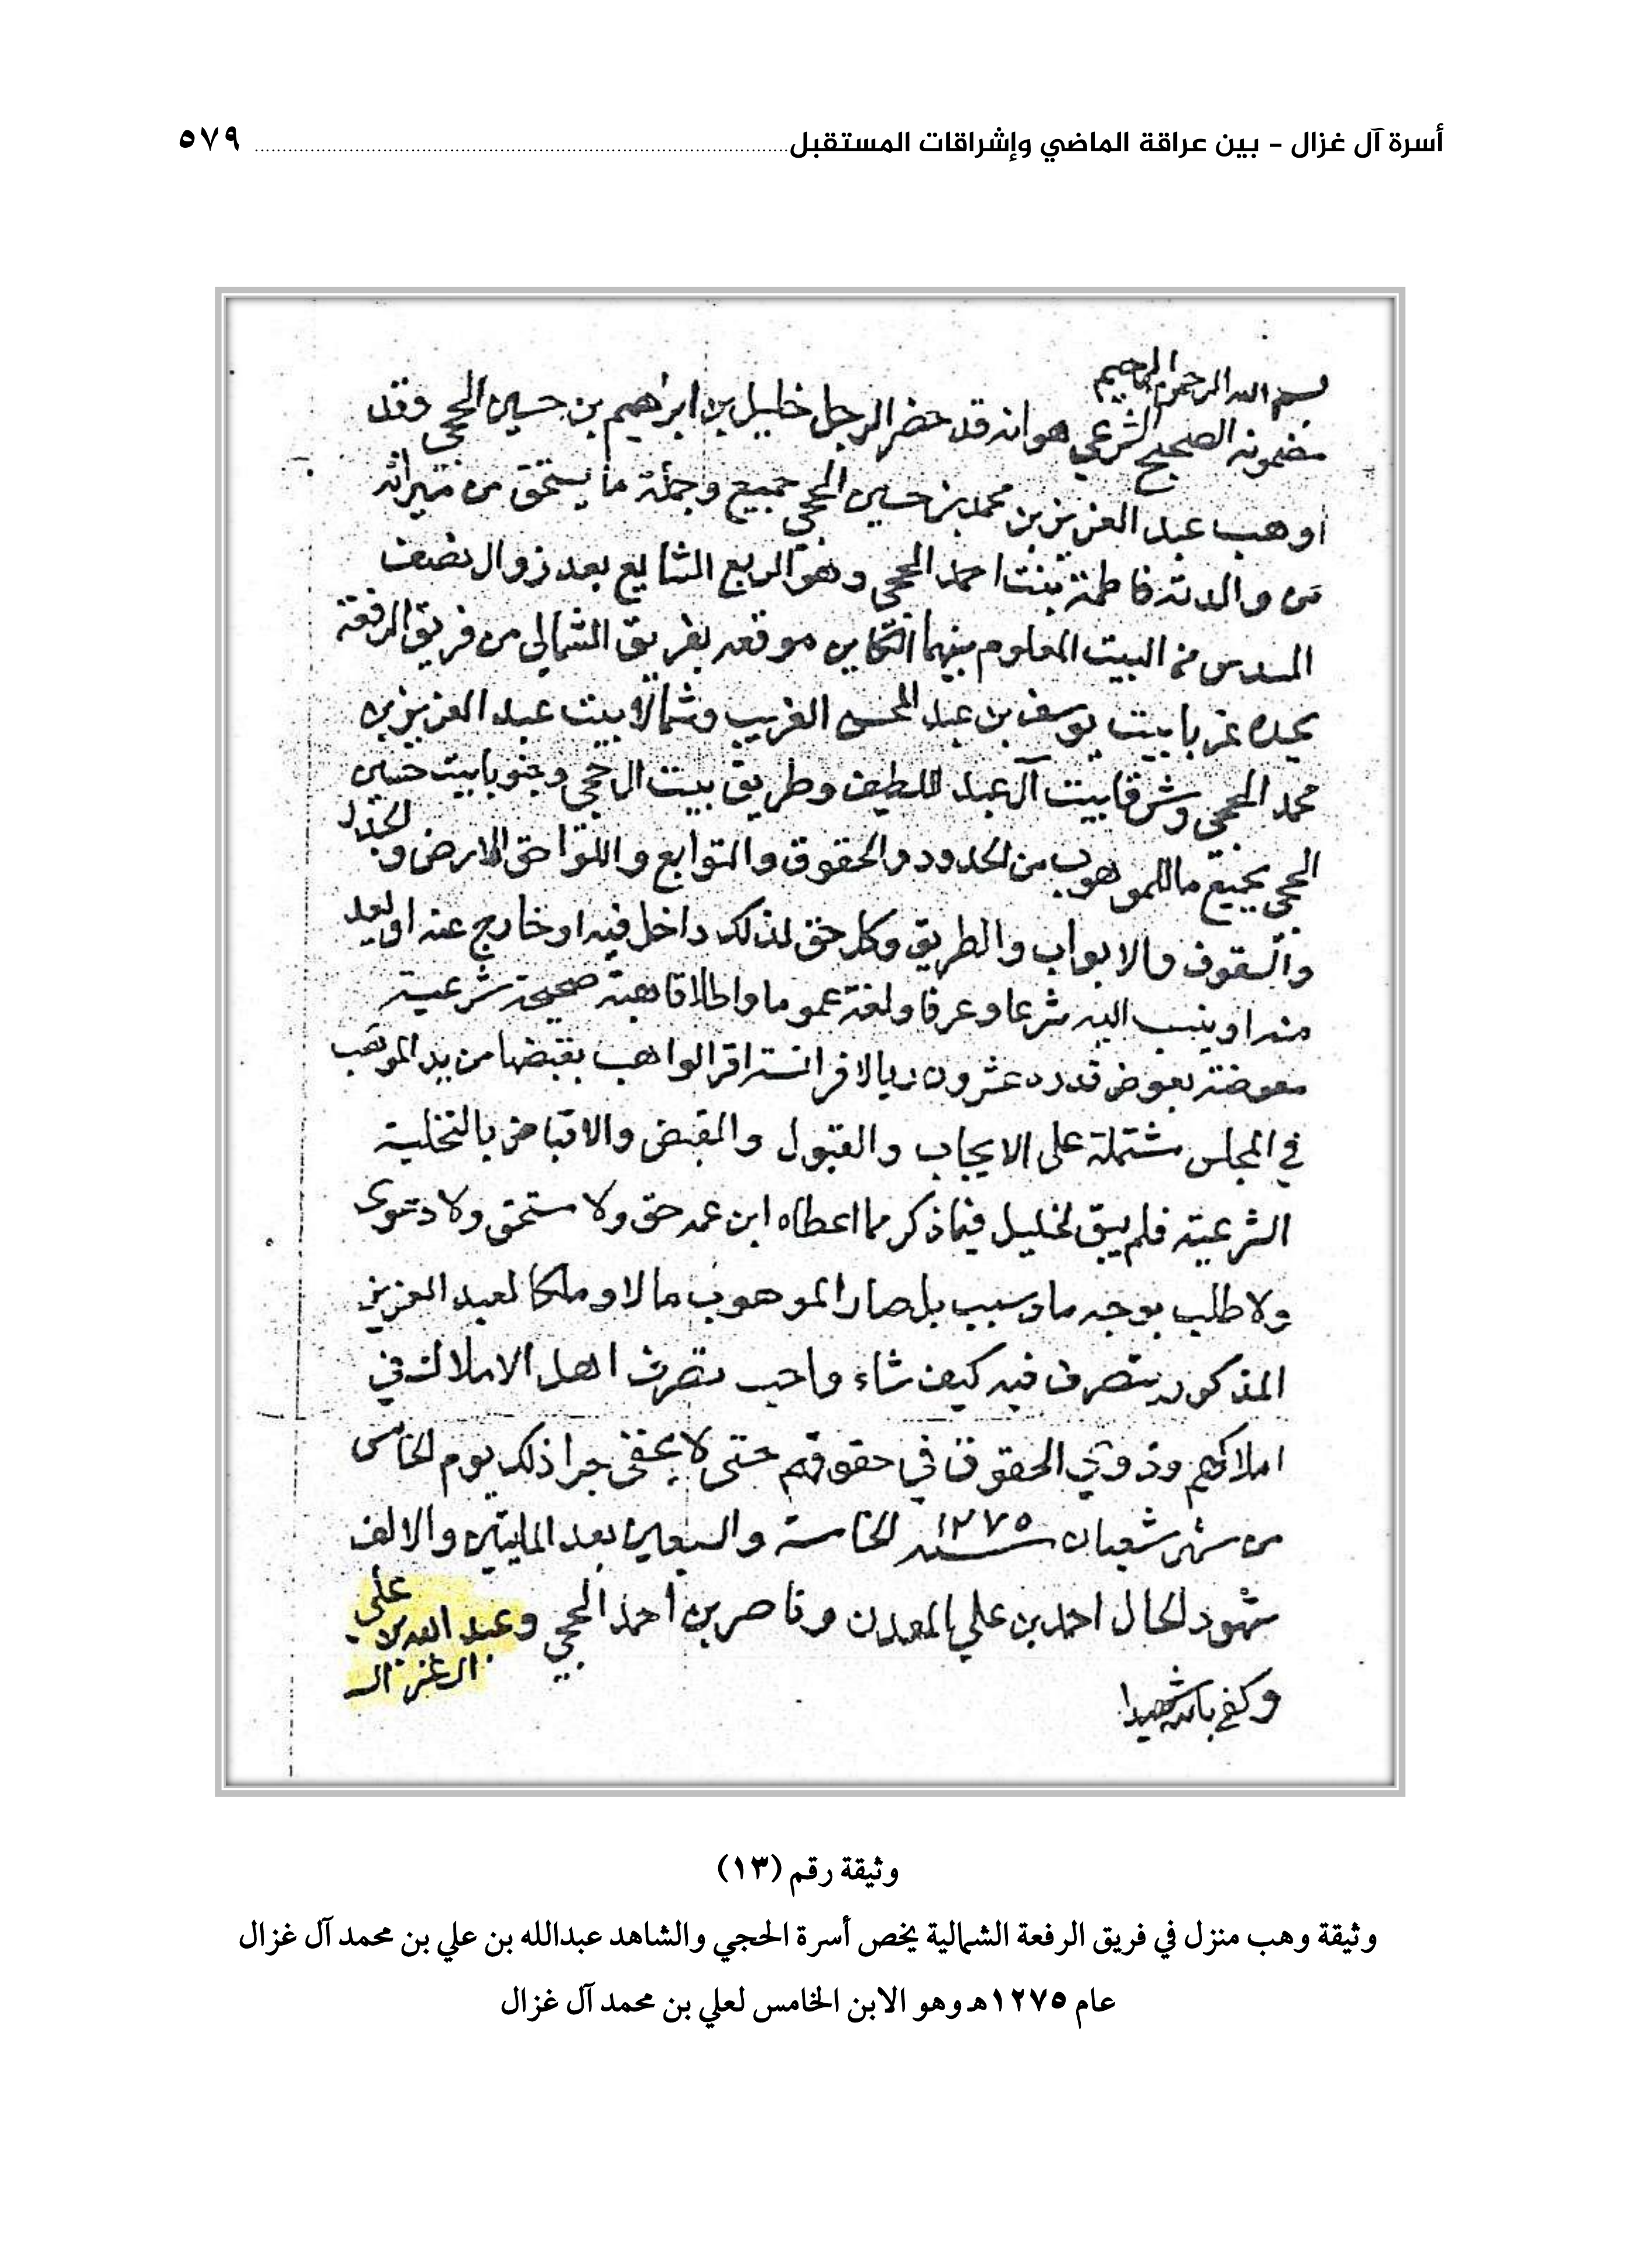 أسرة آل غزال – بين عراقة الماضي وإشراقات المستقبل ٥٧٩
بسم الله الرحمن الرحيم
مضمونه الصحيح الشرعي هو انه قد حضر الرجل خليل بن ابراهيم بن حسين الحجي وقد
اوهب عبد العزيز بن محمد بن حسين الحجي جميع وجملة ما يستحق من ميراثه
من والدته فاطمة بنت احمد الحجي وهو الربع الشايع بعد زوال نصف
السدس من البيت المعلوم بينهما الكاين موقعه بفريق الشمالي من فريق الرفعة
يحده غربا بيت يوسف بن عبد المحسن الغريب وشمالا بيت عبد العزيز بن
محمد الحجي وشرقا بيت آل عبد اللطيف وطريق بيت ال حجي وجنوبا بيت حسين
الحجي بجميع ما للموهوب من الحدود والحقوق والتوابع واللواحق الارض و
والسقوف والابواب والطريق وكل حق لذلك داخل فيه او خارج عنه او يعد
منه او ينسب اليه شرعا وعرفا ولغة عموما واطلاقا هبة صحيحة شرعية
معوضة بعوض قدره عشرون ريالا فرانسة اقر الواهب بقبضها من يد الموهب
في المجلس مشتملة على الايجاب والقبول والقبض والاقباض بالتخلية
الشرعية فلم يبق لخليل فيما ذكر مما اعطاه ابن عمه حق ولا ستحق ولا دعوى
ولا طلب بوجه ما وسبب بل صار الموهوب مالا وملكا لعبد العزيز
المذكور يتصرف فيه كيف شاء واحب تصرف اهل الاملاك في
املاكهم وذوي الحقوق في حقوقهم حتى لا يخفى جرا ذلك يوم الخامس
من شهر شعبان سنة ١٢٧٥ الخامسة والسبعين بعد المايتين والالف
شهود الحال احمد بن علي المعدن وناصر بن احمد الحجي وعبد الله بن علي
ال غزال
وكفى بالله شهيدا
وثيقة رقم (١٣)
وثيقة وهب منزل في فريق الرفعة الشمالية يخص أسرة الحجي والشاهد عبدالله بن علي بن محمد آل غزال
عام ١٢٧٥هـ وهو الابن الخامس لعلي بن محمد آل غزال